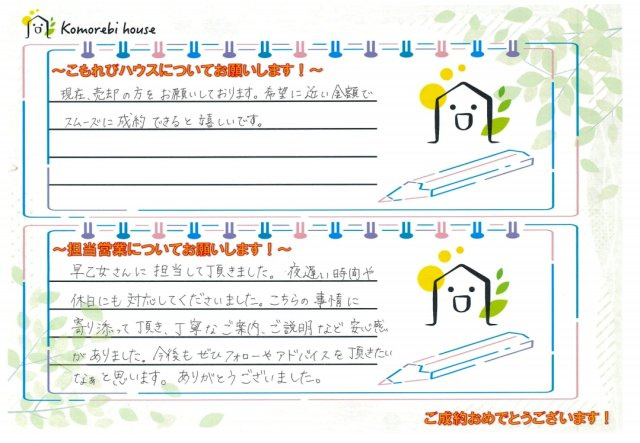 Komorebi house
～こもれびハウスについてお願いします！～
現在、売却の方をお願いしております。希望に近い金額で
スムーズに成約できると嬉しいです。
～担当営業についてお願いします！～
早乙女さんに担当して頂きました。夜遅い時間や
休日にも対応してくださいました。こちらの事情に
寄り添って頂き、丁寧なご案内、ご説明など安心感
がありました。今後もぜひフォローやアドバイスを頂きたい
なぁと思います。ありがとうございました。
ご成約おめでとうございます！